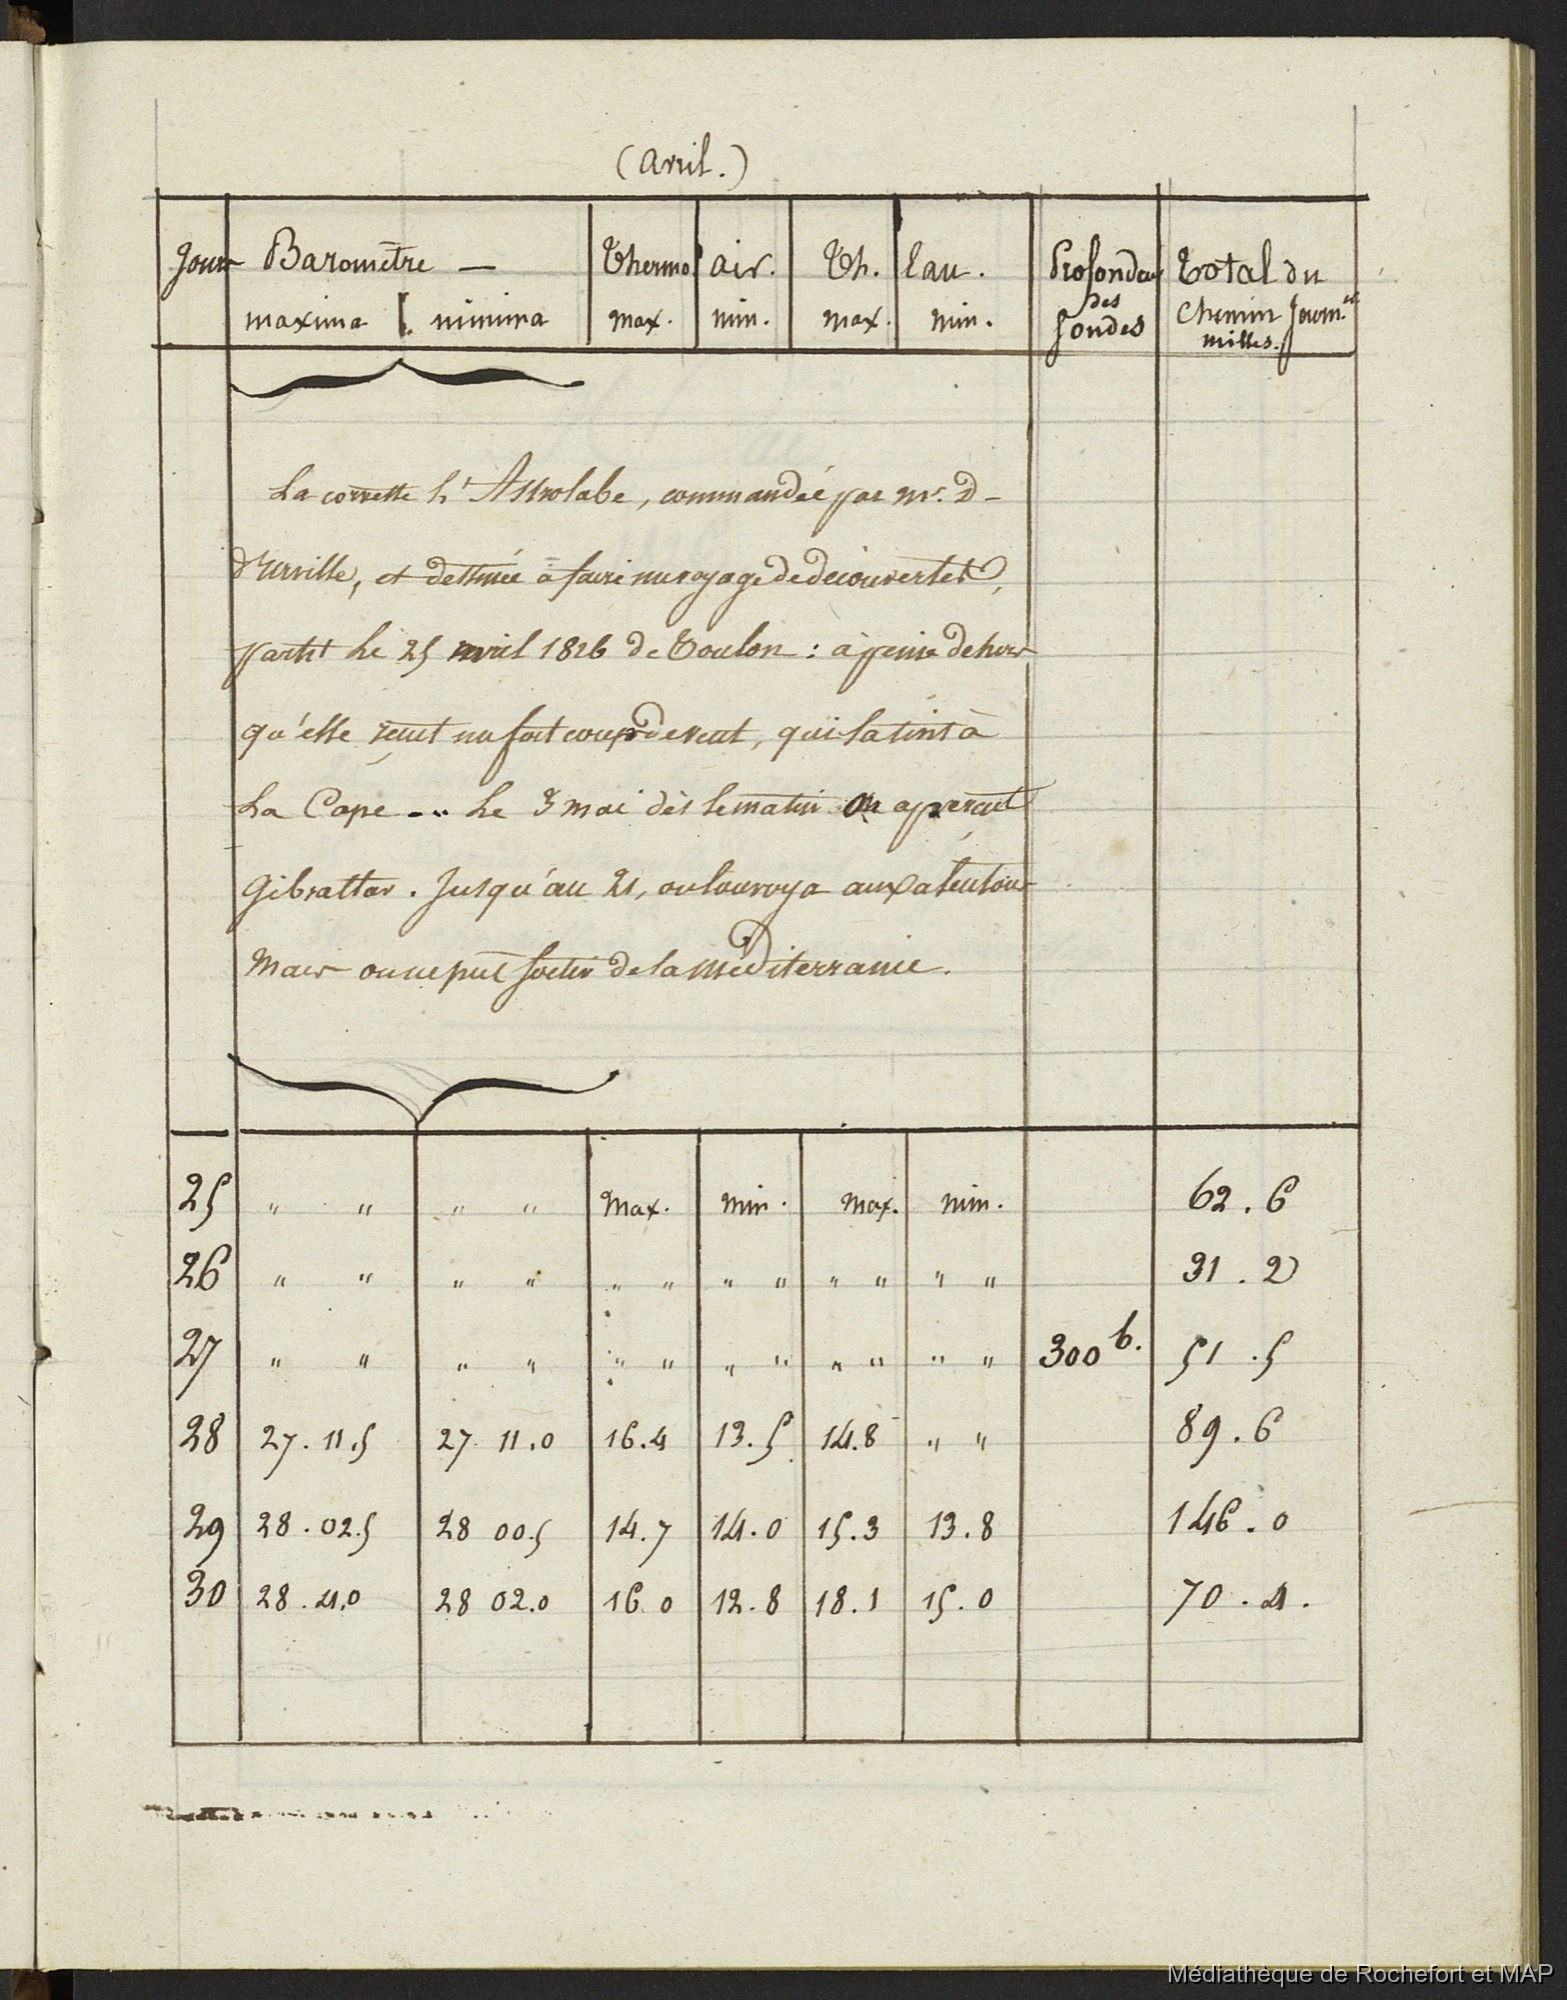 (avril.)
Jours Baromètre — Thermo. air. Th. l'au. Profondeur des sondes Total du chemin journ.el milles.
maxima minima max. min. max. min.
La corvette L'Astrolabe, commandée par mr. D-
d'urville, et destinée à faire un voyage de découvertes,
partit Le 25 avril 1826 de Toulon : à peine dehors
qu'elle reçut un fort coup de vent, qui la tint à
La Cape ... Le 3 mai dès le matin on aperçut
Gibraltar. Jusqu'au 21, on louvoya aux alentours
mais on ne put sortir de la méditerranie.
25 " " " " max. min. max. min. 62.6
26 " " " " " " " " " " " " 31.2
27 " " " " " " " " " " " " 300 b. 51.5
28 27.11.5 27 11.0 16.4 13.5 14.8 " " 89.6
29 28.02.5 28 00.5 14.7 14.0 15.3 13.8 146.0
30 28.4.0 28 02.0 16 0 12.8 18.1 15.0 70.4.
Médiathèque de Rochefort et MAP